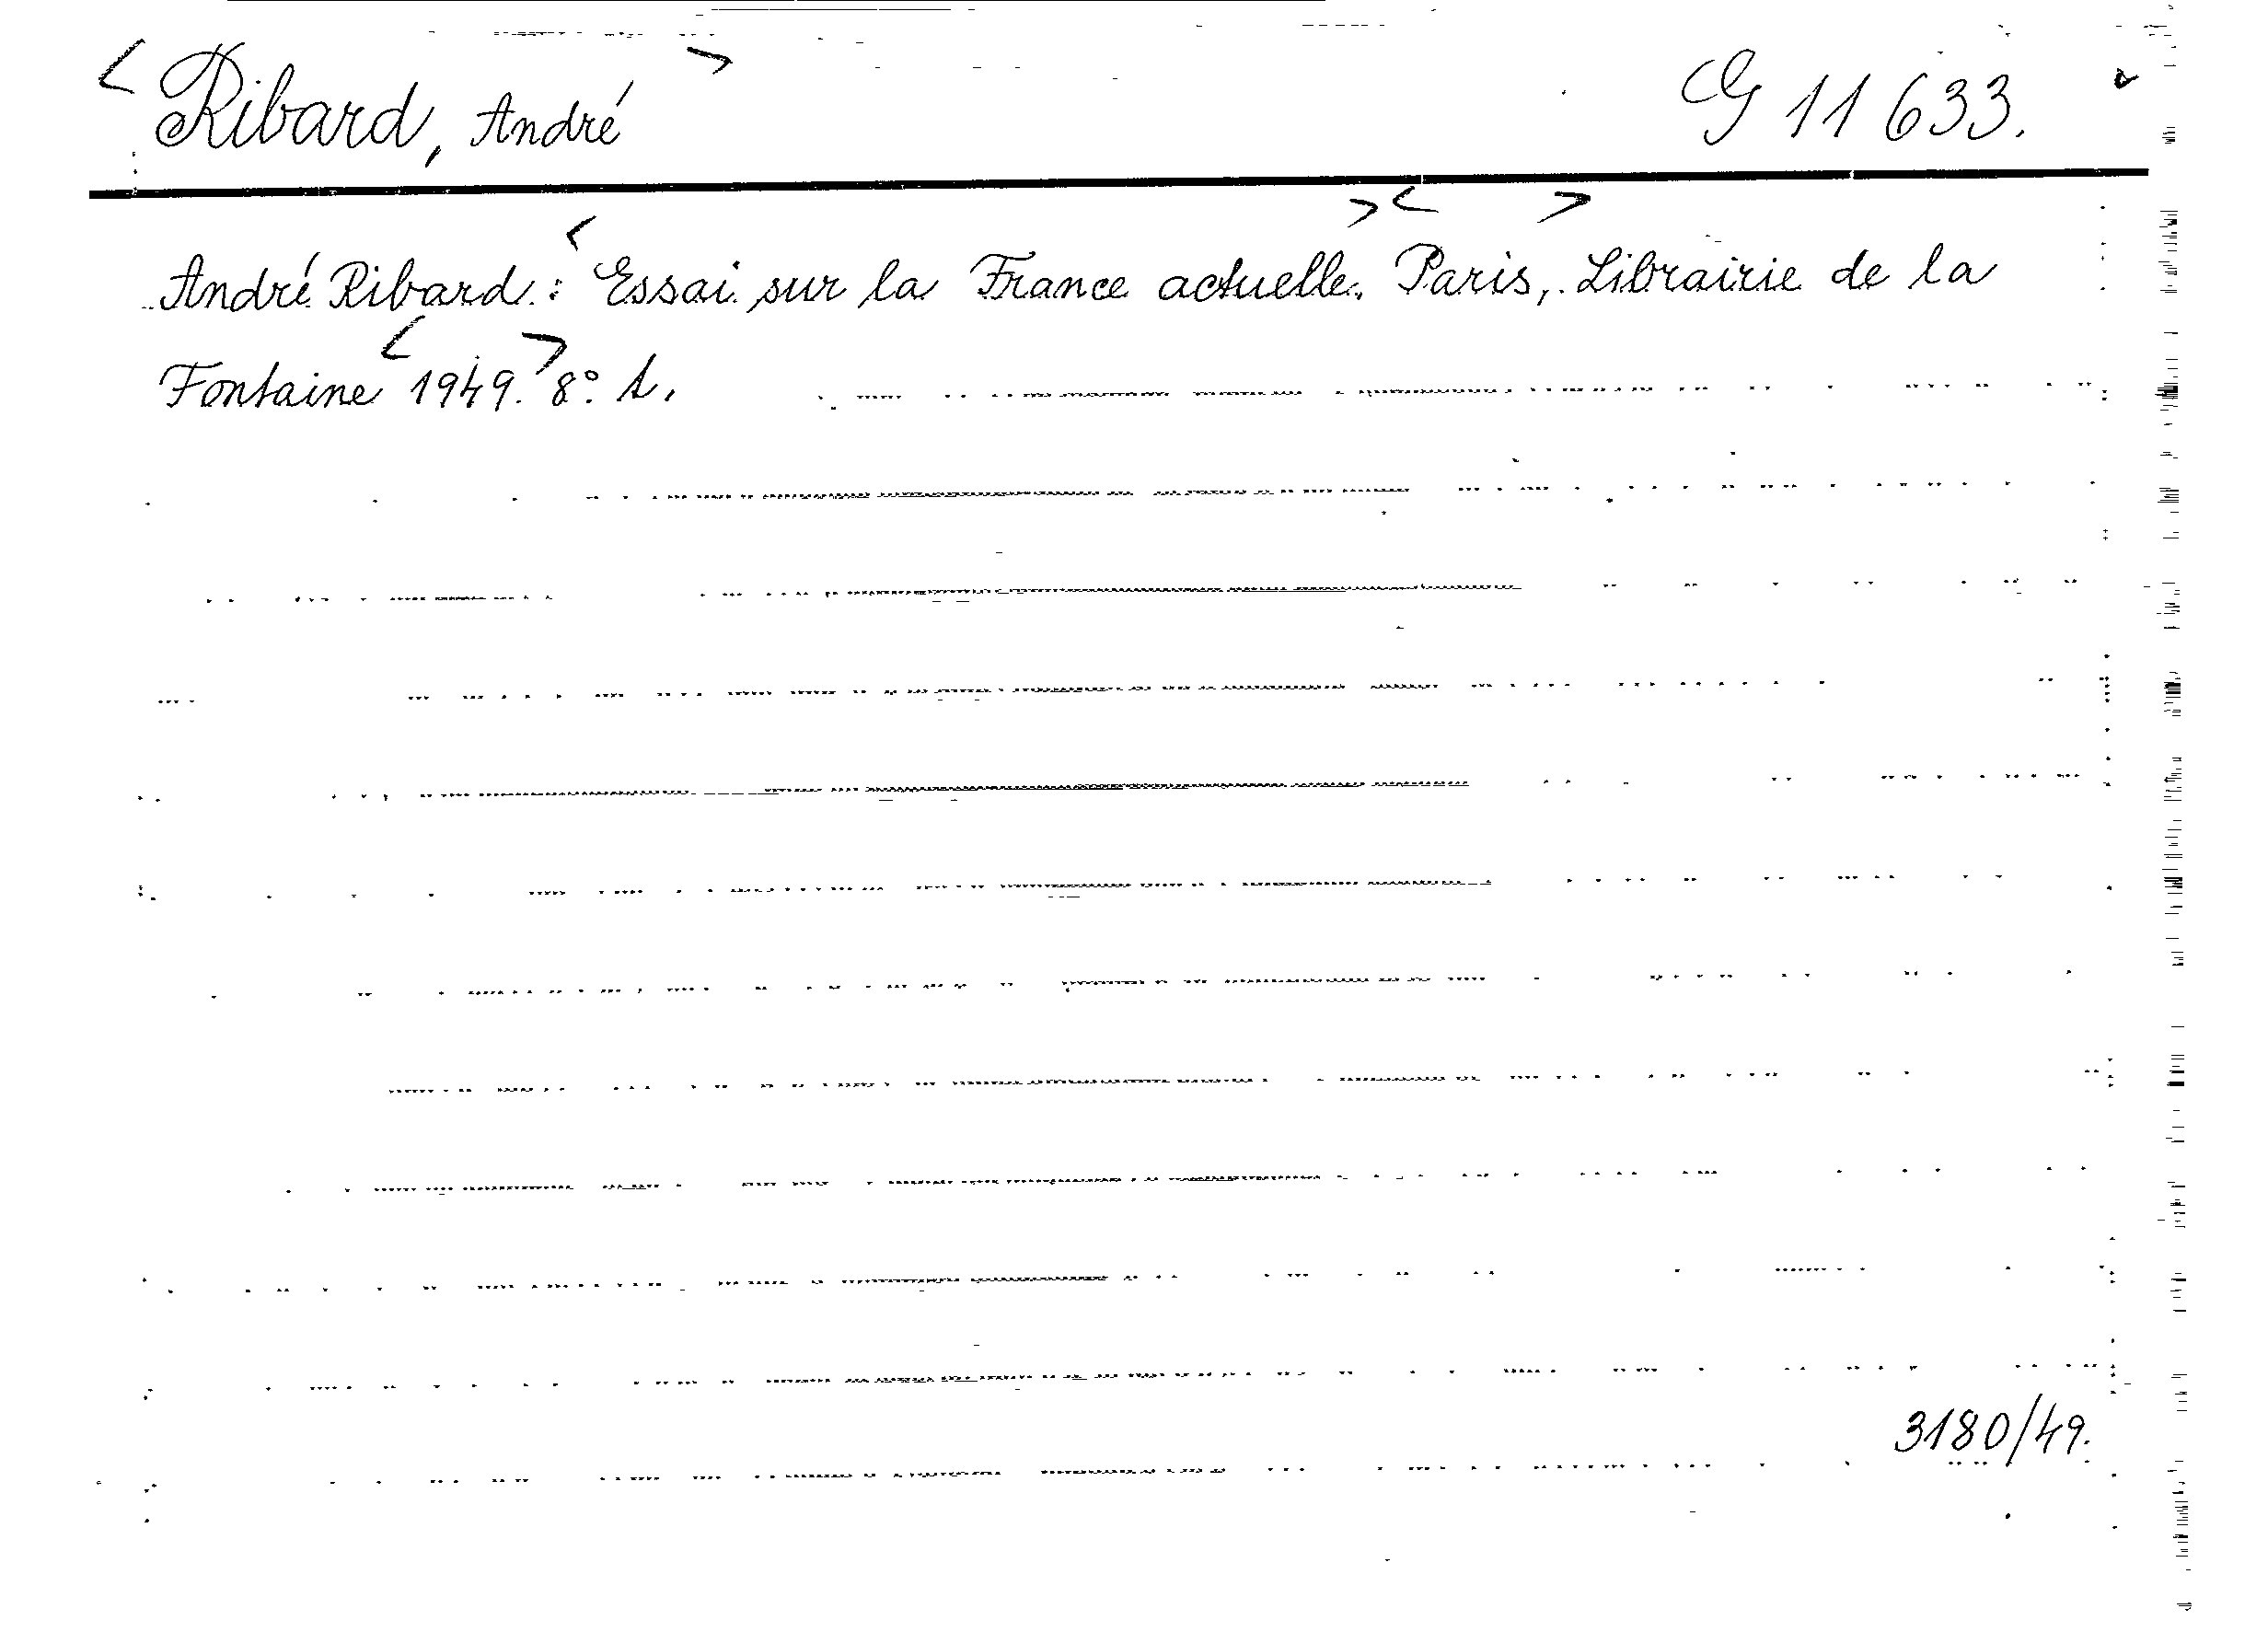 <Ribard, André> G 11 633.
André Ribard: <Essai sur la France actuelle.> <Paris,> Librairie de la
Fontaine <1949.> 8°.
3180/49.